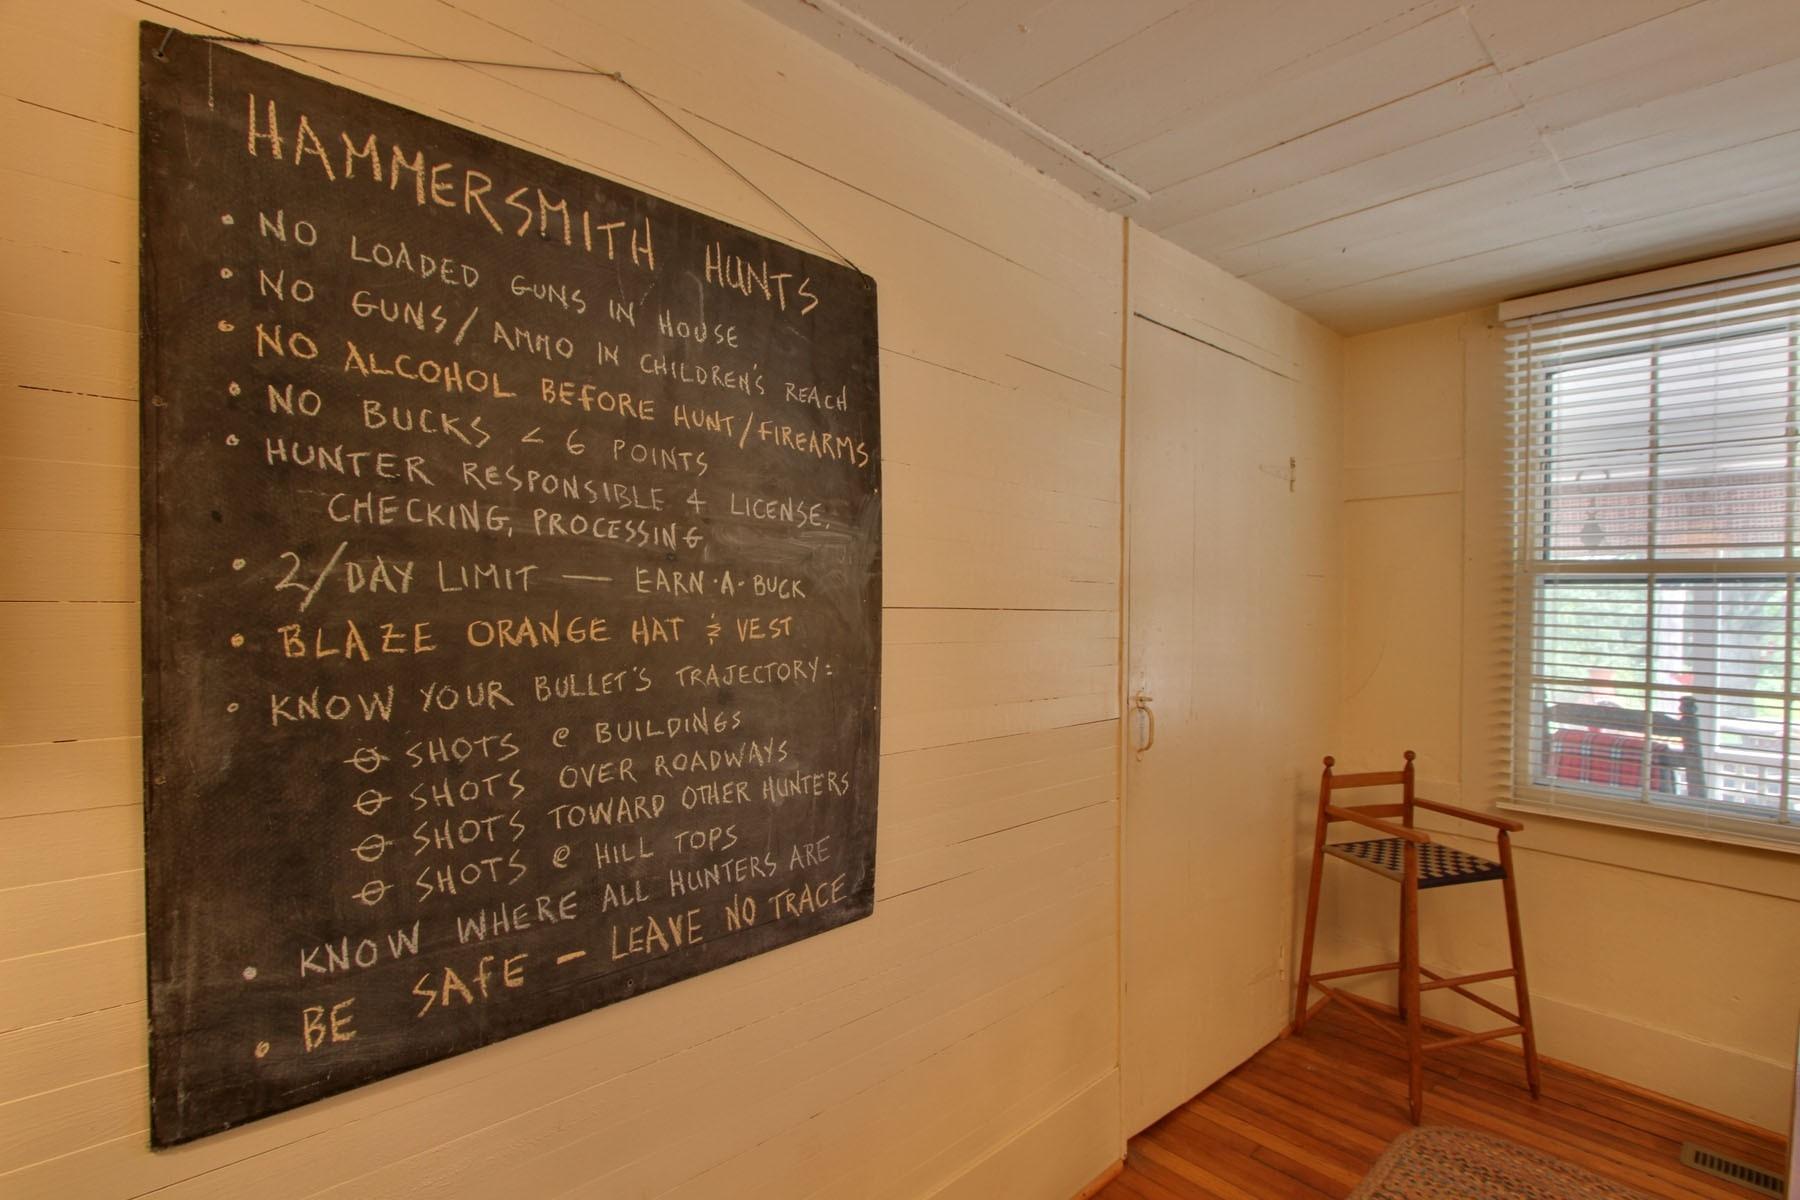 HAMMERSMITH HUNTS
• NO LOADED GUNS IN HOUSE
• NO GUNS/AMMO IN CHILDREN'S REACH
• NO ALCOHOL BEFORE HUNT/FIREARMS
• NO BUCKS < 6 POINTS
• HUNTER RESPONSIBLE 4 LICENSE,
CHECKING, PROCESSING
• 2/DAY LIMIT — EARN·A·BUCK
• BLAZE ORANGE HAT & VEST
• KNOW YOUR BULLET'S TRAJECTORY:
∅ SHOTS @ BUILDINGS
∅ SHOTS OVER ROADWAYS
∅ SHOTS TOWARD OTHER HUNTERS
∅ SHOTS @ HILL TOPS
• KNOW WHERE ALL HUNTERS ARE
• BE SAFE – LEAVE NO TRACE